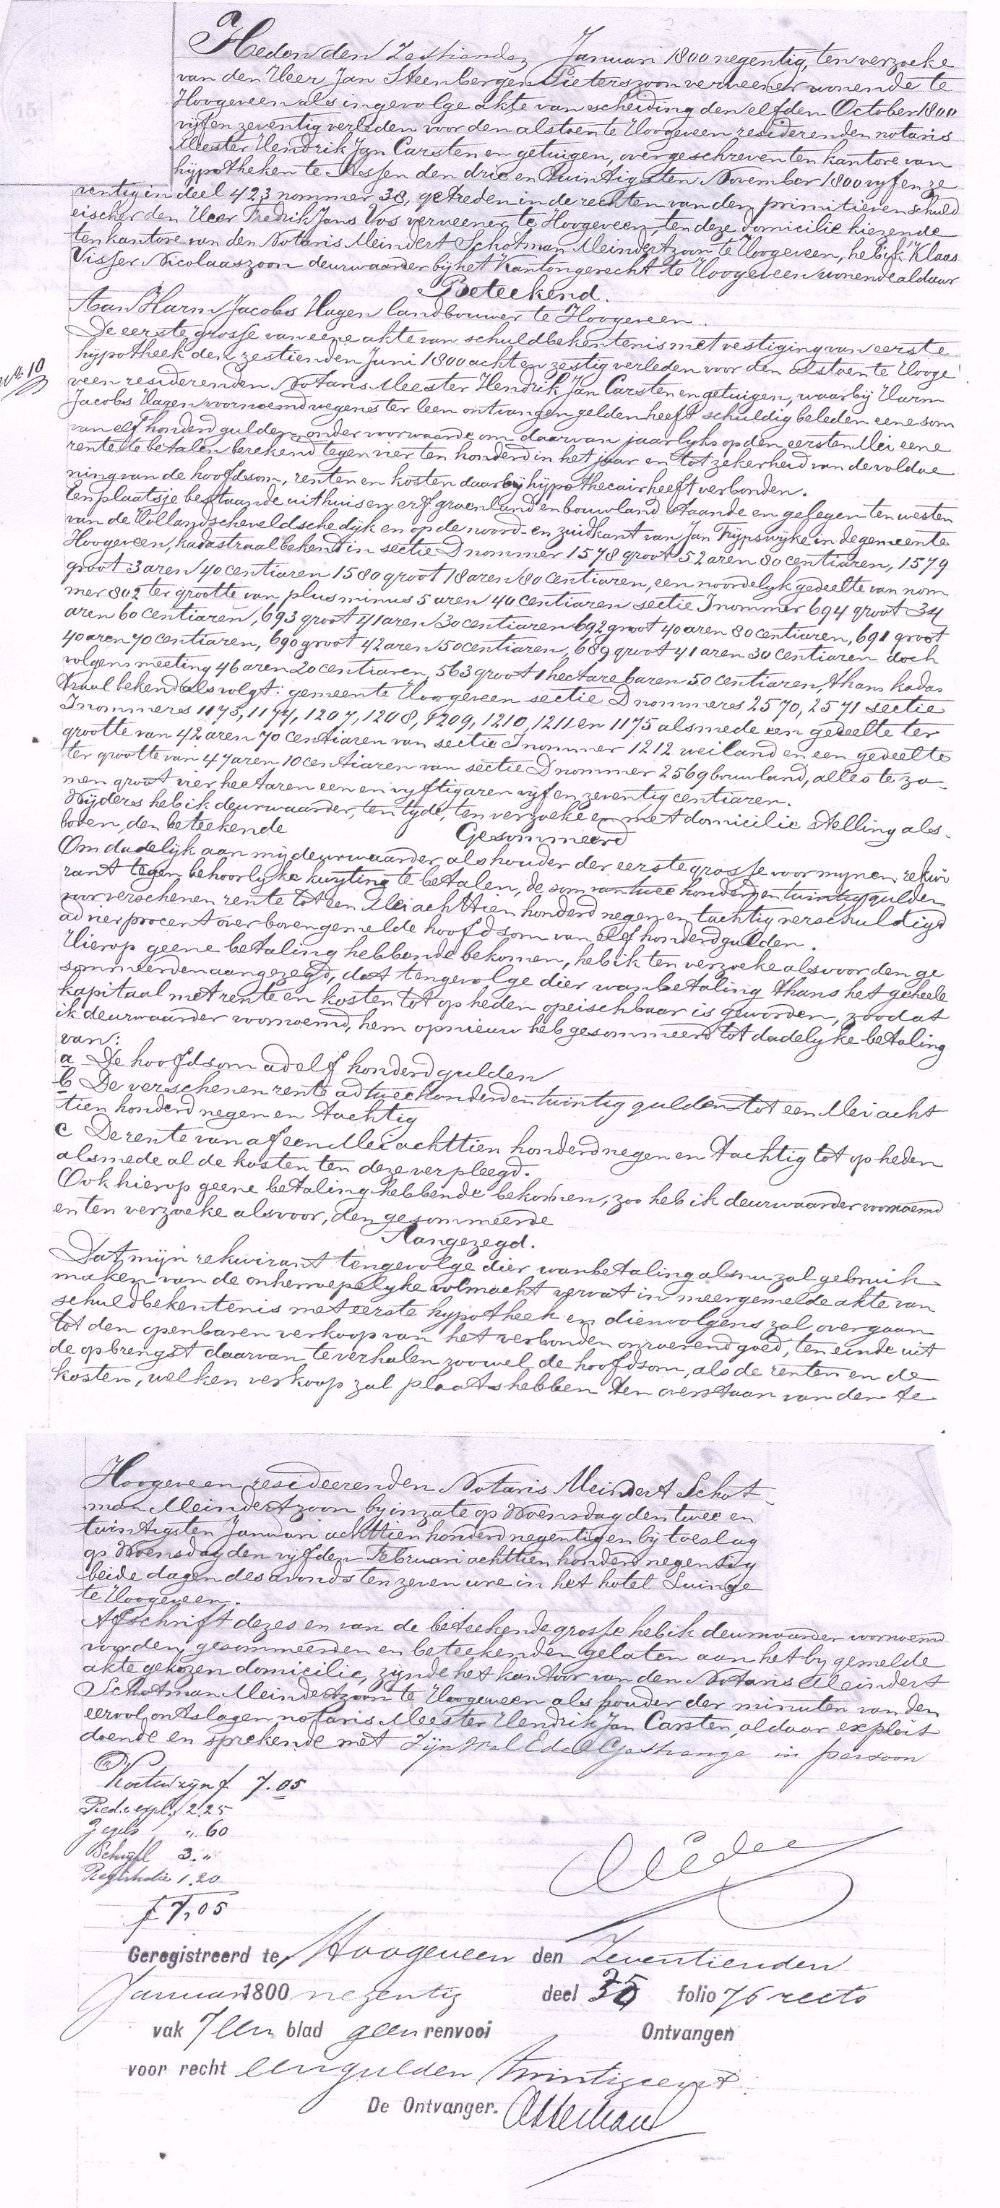 Heden den Zestienden Januari 1800 negentig, ten verzoeke
van den Heer Jan Steenbergen Pieterszoon verveener wonende te
Hoogeveen als ingevolge akte van scheiding den elfden October 1800
vijf en zeventig verleden voor den alstoen te Hoogeveen resideerenden notaris
Meester Hendrik Jan Carsten en getuigen, overgeschreven ten kantore van
hypotheken te Assen den drie en twintigsten November 1800 vyf en ze
ventig in deel 423 nommer 38, getreden in de rechten van den primitieven schuld
eischer den Heer Fredrik Jans Vos verveener te Hoogeveen, ten deze domicilie kiezende
ten kantore van den Notaris Meindert Schotman Meindertzoon te Hoogeveen, heb ik Klaas
Visser Nicolaaszoon deurwaarder bij het Kantongerecht te Hoogeveen wonende aldaar
Beteekend.
Aan Harm Jacobs Hagen landbouwer te Hoogeveen.
De eerste grosse van eene akte van schuldbekentenis met vestiging van eerste
hypotheek den zestienden Juni 1800 acht en zestig verleden voor den alstoen te Hooge
veen resideerenden Notaris Meester Hendrik Jan Carsten en getuigen, waarbij Harm
Jacobs Hagen voornoemd wegens ter leen ontvangen gelden heeft schuldig beleden eene som
van elf honderd gulden, onder voorwaarde om daarvan jaarlyks op den eersten Mei eene
rente te betalen berekend tegen vier ten honderd in het jaar en tot zekerheid van de voldoe
ning van de hoofdsom, renten en kosten daarbij hypothecair heeft verbonden.
Een plaatsje bestaande uit huis en erf groenland en bouwland staande en gelegen ten westen
van de Hollandscheveldsche dijk en op de noord- en zuidkant van Jan Frypswijk in de gemeente
Hoogeveen, kadastraal bekend in sectie D nommer 1578 groot 52 aren 80 centiaren, 1579
groot 3 aren 40 centiaren 1580 groot 18 aren 80 centiaren, een noordelyk gedeelte van nom
mer 802 ter grootte van plus minus 5 aren 40 centiaren sectie I nommer 694 groot 34
aren 60 centiaren, 693 groot 41 aren 30 centiaren 692 groot 40 aren 80 centiaren, 691 groot
40 aren 70 centiaren, 690 groot 42 aren 50 centiaren, 689 groot 41 aren 30 centiaren doch
volgens meeting 46 aren 20 centiaren, 563 groot 1 hectare 6 aren 50 centiaren, thans kadas
traal bekend als volgt: gemeente Hoogeveen sectie D nommeres 2570, 2571 sectie
I nommeres 1173, 1174, 1207, 1208, 1209, 1210, 1211 en 1175 alsmede een gedeelte ter
grootte van 42 aren 70 centiaren van sectie I nommer 1212 weiland en een gedeelte
ter grootte van 47 aren 10 centiaren van sectie D nommer 2569 bouwland, alles te za-
men groot vier hectaren een en vyftig aren vijf en zeventig centiaren.
Wijders heb ik deurwaarder, ten tyde, ten verzoeke en met domicilie stelling als-
boven, den beteekende
Gesommeerd
Om dadelijk aan mij deurwaarder als houder der eerste grosse voor mynen rekwi
rant tegen behoorlyke kwyting te betalen, de som van twee honderd en twintig gulden
voor verschenen rente tot een Mei achttien honderd negen en tachtig verschuldigd
ad vier procent over bovengemelde hoofdsom van elf honderd gulden.
Hierop geene betaling hebbende bekomen, heb ik ten verzoeke alsvoor den ge
sommeerden aangezegd, dat tengevolge dier wanbetaling thans het geheele
kapitaal met rente en kosten tot op heden opeischbaar is geworden, zoodat
ik deurwaarder voornoemd, hem opnieuw heb gesommeerd tot dadelyke betaling
van:
a De hoofdsom ad elf honderd gulden
b De verschenen rente ad twee honderd en twintig gulden tot een Mei acht
tien honderd negen en tachtig
c De rente van af een Mei achttien honderd negen en tachtig tot op heden
alsmede al de kosten ten deze verpleegd.
Ook hierop geene betaling hebbende bekomen, zoo heb ik deurwaarder voornoemd
en ten verzoeke alsvoor, den gesommeerde
Aangezegd.
Dat mijn rekwirant tengevolge dier wanbetaling alsnu zal gebruik
maken van de onherroepelyke volmacht vervat in meergemelde akte van
schuldbekentenis met eerste hypotheek en dienvolgens zal overgaan
tot den openbaren verkoop van het verbonden onroerend goed, ten einde uit
de opbrengst daarvan te verhalen zoowel de hoofdsom, als de renten en de
kosten, welken verkoop zal plaats hebben ten overstaan van den te
Hoogeveen resideerenden Notaris Meindert Schot-
man Meindertzoon by inzate op Woensdag den twee en
twintigsten Januari achttien honderd negentig en by toeslag
op Woensdag den vijfden Februari achttien honderd negentig
beide dagen des avonds ten zeven ure in het hotel Luinge
te Hoogeveen.
Afschrift dezes en van de beteekende grosse heb ik deurwaarder voornoemd
voor den gesommeerden en beteekenden gelaten aan het by gemelde
akte gekozen domicilie, zynde het kantoor van den Notaris Meindert
Schotman Meindertzoon te Hoogeveen als houder der minuten van den
eervol ontslagen notaris Meester Hendrik Jan Carsten, aldaar exploit
doende en sprekende met Zijn Wel Edel Gestrenge in persoon
Kosten zyn f 7.05
Red. e expl. 2.25
Zegels " 60
Schryfl 3. "
Registratie 1.20
f 7,05
Geregistreerd te Hoogeveen den Zeventienden
Januari 1800 negentig deel 35 folio 76 recto
vak 7 een blad geen renvooi Ontvangen
voor recht een gulden twintig cent.
De Ontvanger.